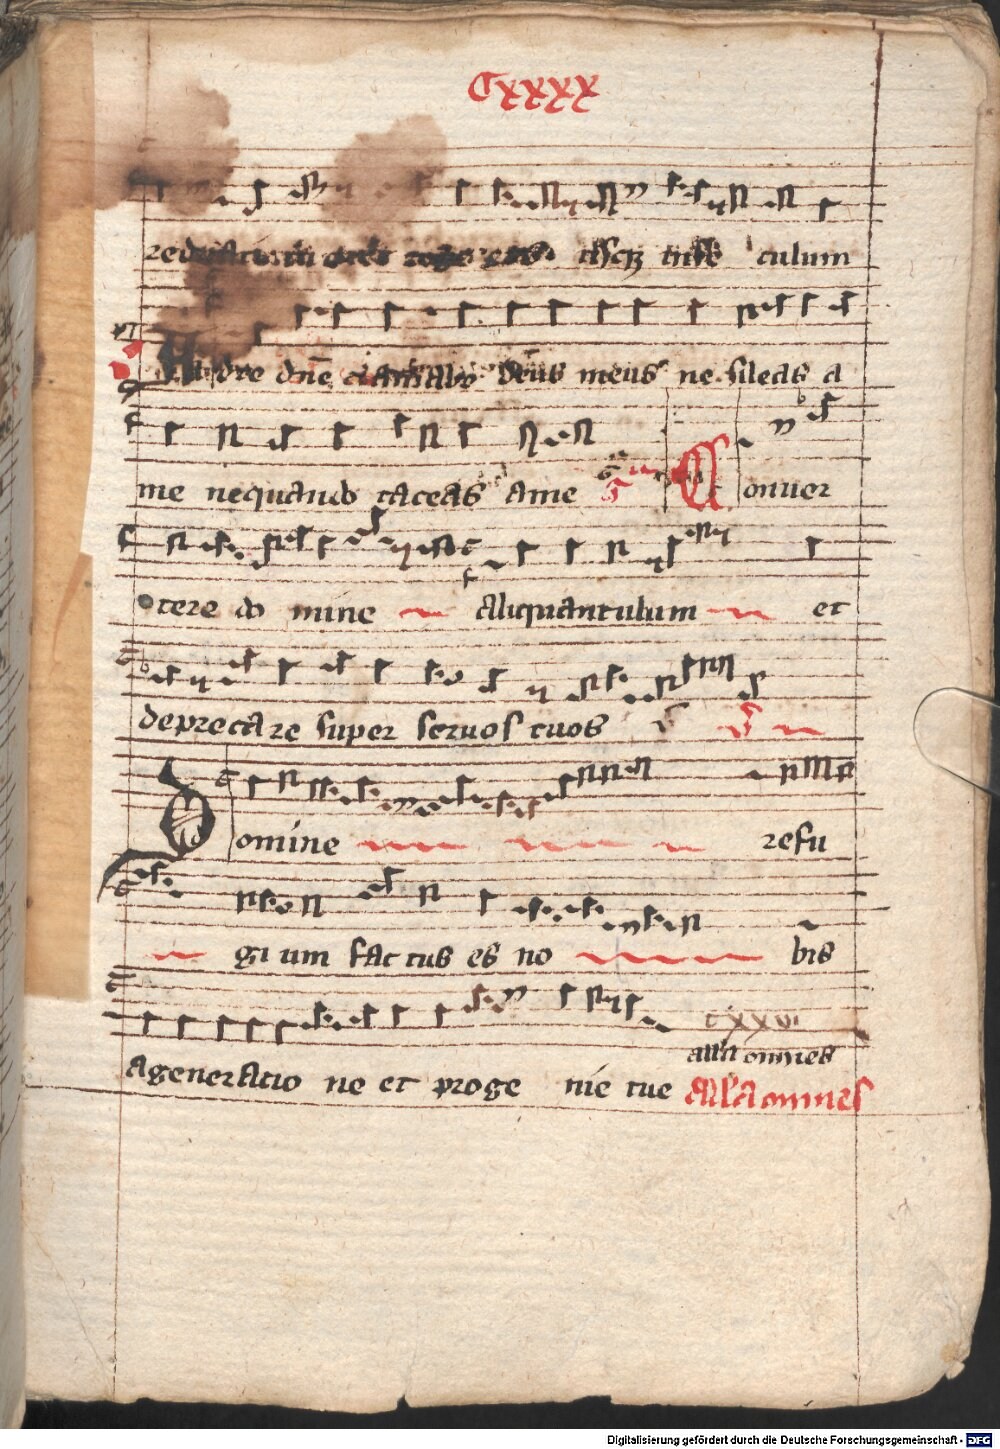 CXXXX
culum
dne clamabo deus meus ne sileas a
me nequando taceas ame
Conuer
tere do mine aliquantulum et
deprecare super seruos tuos
Domine refu
gi um factus es no bis
CXXVI
alla omnes
ageneratio ne et proge nie tue Alla omnes
Digitalisierung gefördert durch die Deutsche Forschungsgemeinschaft - DFG